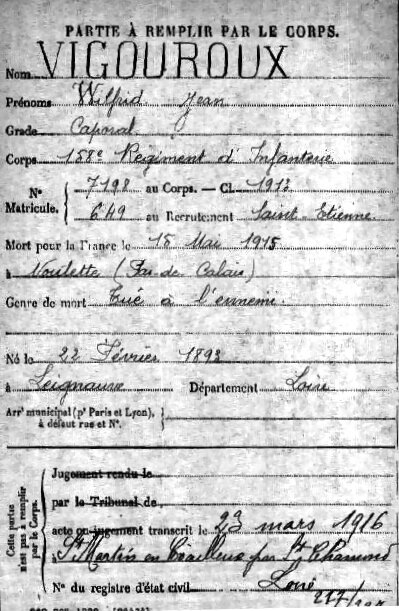 PARTIE À REMPLIR PAR LE CORPS.
Nom VIGOUROUX
Prénoms Wilfrid Jean
Grade Caporal
Corps 158e Régiment d'Infanterie
N° Matricule. 7198 au Corps. — Cl. 1912
649 au Recrutement Saint-Etienne
Mort pour la France le 15 Mai 1915
à Noulette (Pas-de-Calais)
Genre de mort Tué à l'ennemi
Né le 22 Février 1892
à Leignaune Département Loire
Arrt municipal (pr Paris et Lyon), à défaut rue et N°.
Cette partie n'est pas à remplir par le Corps.
Jugement rendu le
par le Tribunal de
acte ou jugement transcrit le 23 mars 1916
St Martin en Coailleux par St Chamond
N° du registre d'état civil Loire